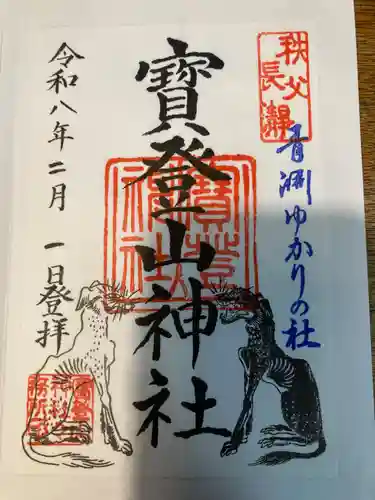 秩父
長瀞
青淵ゆかりの社
寳登山神社
令和八年二月一日登拝